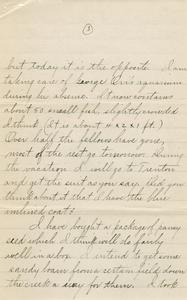 3
but today it is the opposite. I am
taking care of George Ori's aquarium
during his absence. It now contains
about 50 small fish, slightly crowded
I think. (It is about 4 x 2 x 1 ft.)
Over half the fellows have gone,
most of the rest go tomorrow. During
the vacation I will go to Trenton
and get the suit as you say. Did you
think about it that I have the blue
unlined coat?
I have bought a package of pansy
seed which I think will do fairly
well in a box. I intend to get some
sandy loam from a certain field down
the creek a way for them. I took